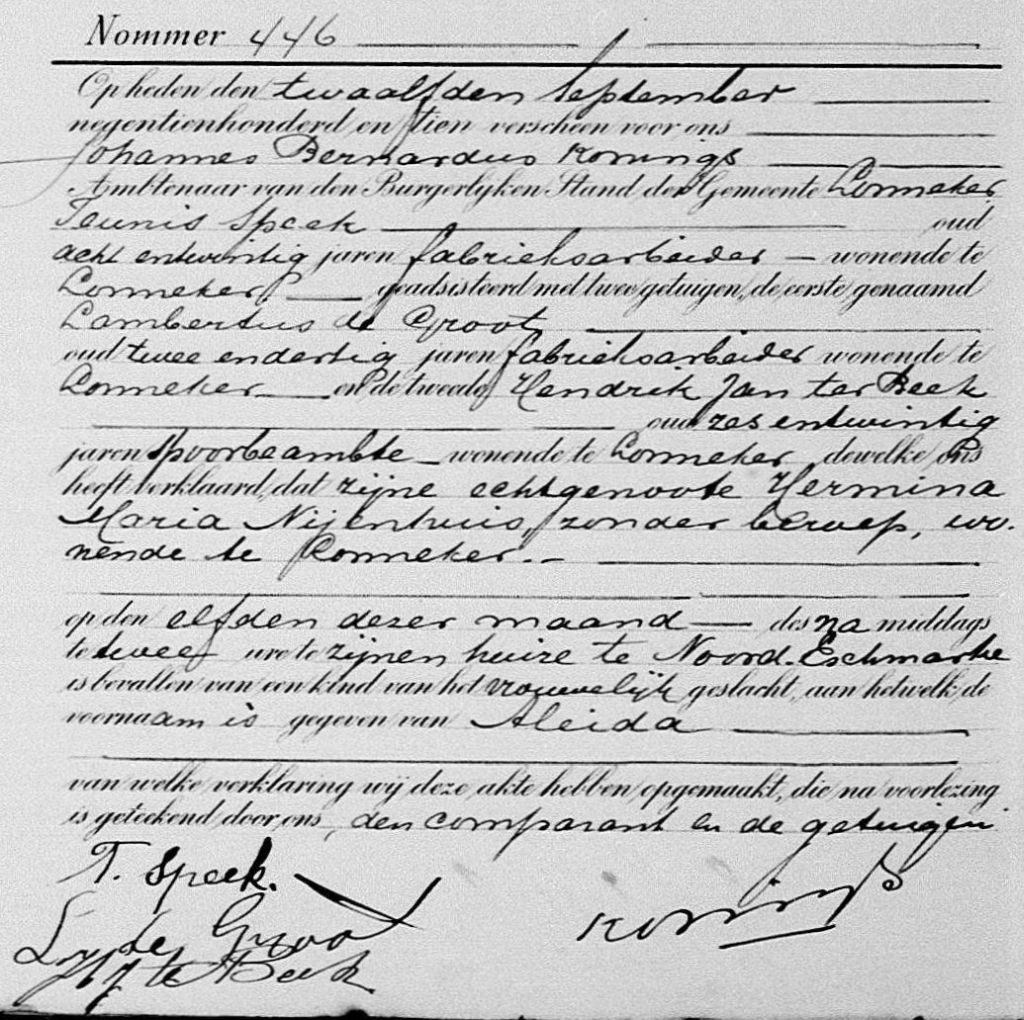 Nommer 446
Op heden den twaalfden September
negentienhonderd en tien verscheen voor ons
Johannes Bernardus Konings
Ambtenaar van den Burgerlijken Stand der Gemeente Lonneker
Teunis Speek oud
acht entwintig jaren fabrieksarbeider – wonende te
Lonneker, geadsisteerd met twee getuigen, de eerste genaamd
Lambertus de Groot,
oud twee endertig jaren fabrieksarbeider wonende te
Lonneker en de tweede Hendrik Jan ter Beek
oud zes entwintig
jaren spoorbeambte – wonende te Lonneker dewelke ons
heeft verklaard, dat zijne echtgenoote Hermina
Maria Nijenhuis, zonder beroep, wo-
nende te Lonneker. –
op den elfden dezer maand — des na middags
te twee ure te zijnen huize te Noord-Eschmarke
is bevallen van een kind van het vrouwelijk geslacht, aan hetwelk de
voornaam is gegeven van Aleida
van welke verklaring wij deze akte hebben opgemaakt, die na voorlezing
is geteekend door ons, den comparant en de getuigen
T. Speek.
L. de Groot
Konings
HJ te Beek